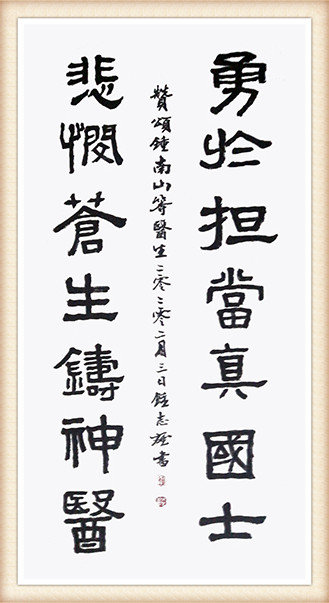 勇於担當真國士
贊頌鍾南山等醫生二零二零二月三日鍾志雄書
悲憫蒼生鑄神醫